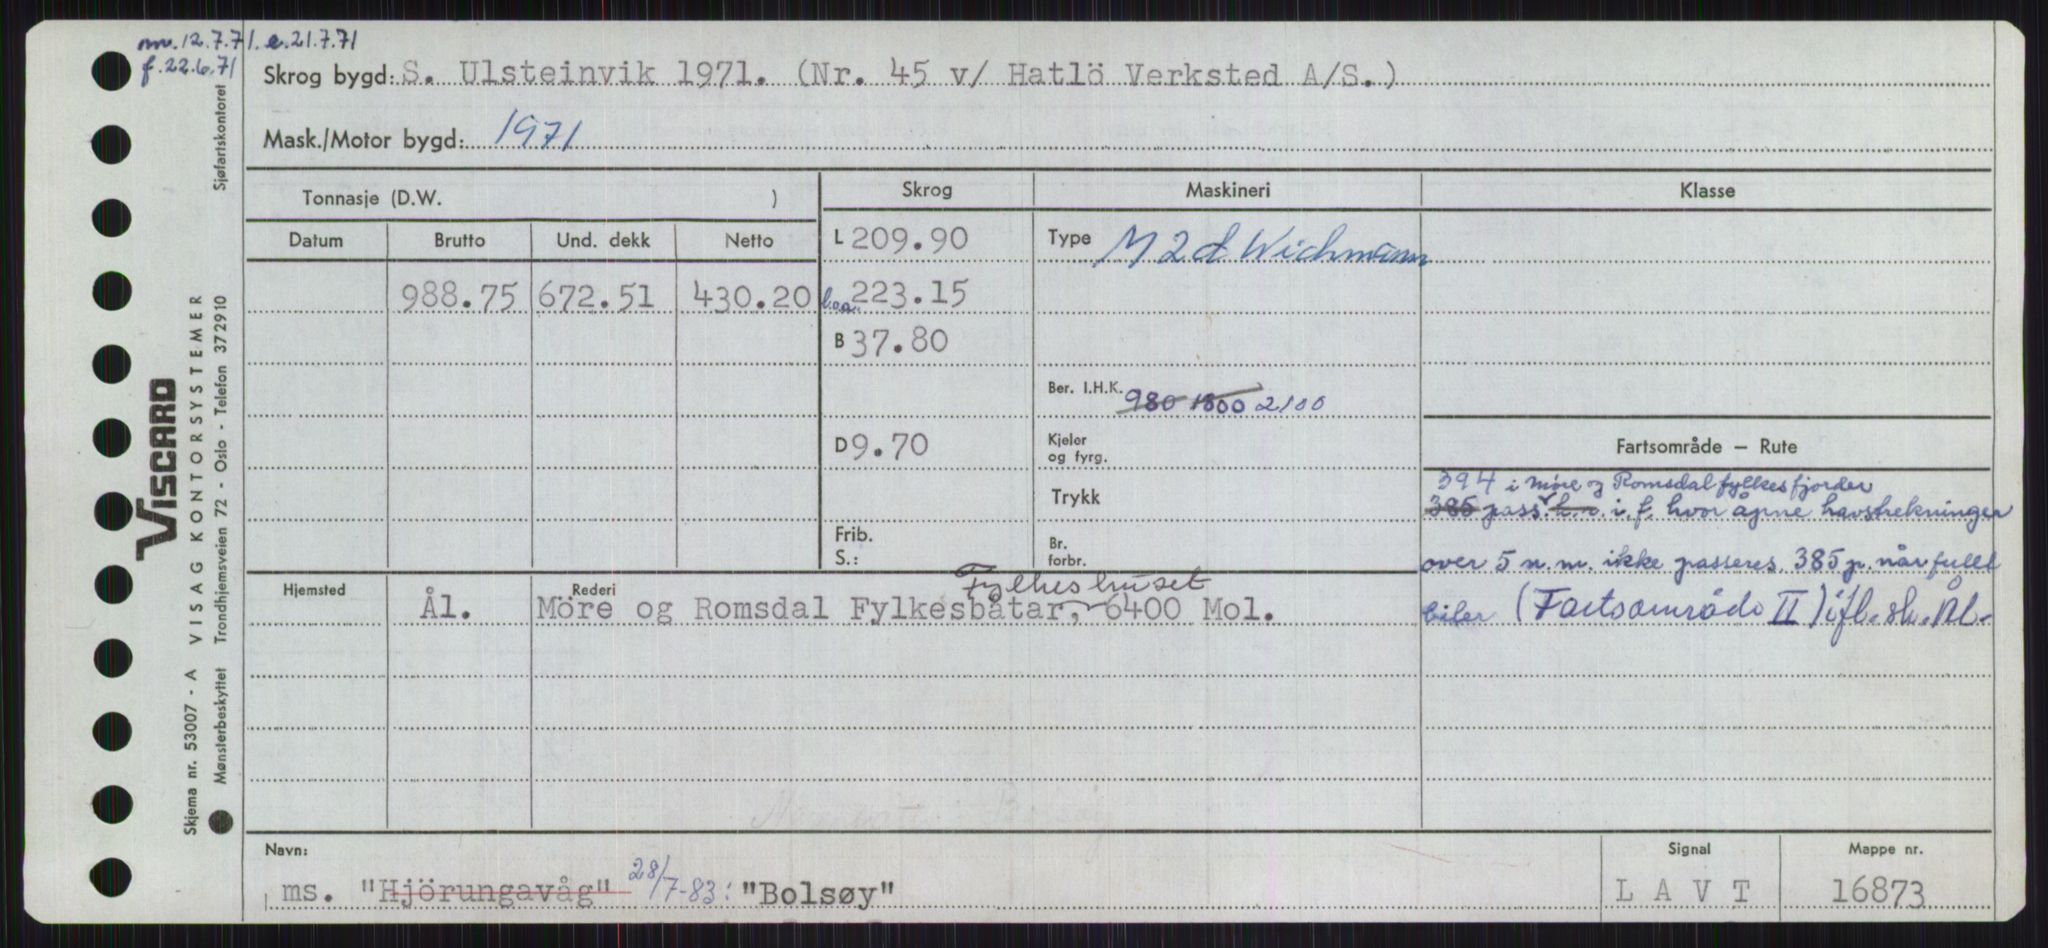 nv. 12.7.71. e.21.7.71
f. 22.6.71
Skrog bygd: S. Ulsteinvik 1971. (Nr. 45 v/ Hatlö Verksted A/S.)
Mask./Motor bygd: 1971
Tonnasje (D.W. )
Skrog
Maskineri
Klasse
Datum Brutto Und. dekk Netto
L 209.90
Type M 2 d Wichmann
988.75 672.51 430.20
l.o.a. 223.15
B 37.80
Ber. I.H.K. 980 1800 2100
D 9.70
Kjeler
og fyrg.
Fartsområde — Rute
Trykk
394 i Møre og Romsdal fylkes fjorder
385 pass. h.r. i. f. hvor åpne havstrekninger
Frib.
S.:
Br.
forbr.
over 5 n. m. ikke passeres. 385 p. når fullt
biler (Fartsområde II) ifl. sk. Ål.
Hjemsted
Rederi
Fylkeshuset
Ål. Möre og Romsdal Fylkesbåtar, 6400 Mol.
Navn:
Signal
Mappe nr.
ms. "Hjörungavåg" 28/7-83: "Bolsøy"
L A V T
16873
VISCARD
VISAG KONTORSYSTEMER
Skjema nr. 53007 - A
Mønsterbeskyttet Trondhjemsveien 72 - Oslo - Telefon 372910 Sjøfartskontoret